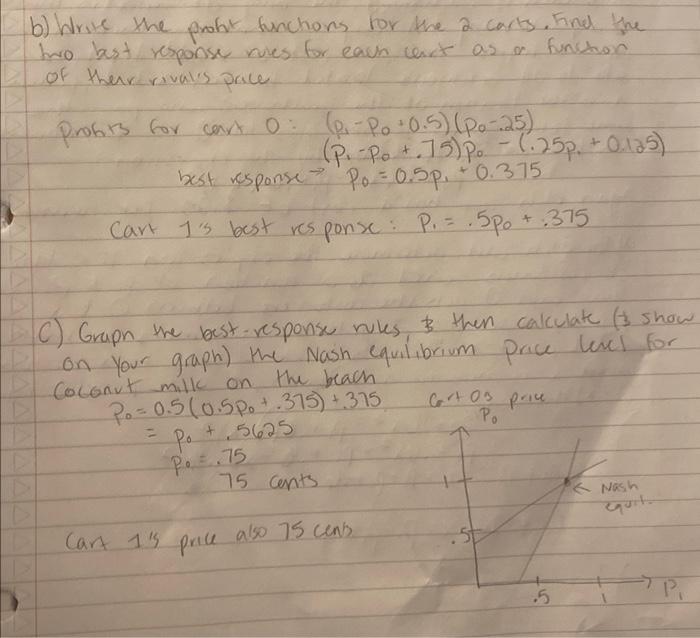 b) Write the profit functions for the 2 carts. Find the
two best response rules for each cart as a function
of their rivals price
Profits for cart 0: (p₁ - p₀ + 0.5)(p₀ - .25)
(p₁ - p₀ + .75)p₀ - (.25p₁ + 0.125)
best response → p₀ = 0.5p₁ + 0.375
Cart 1's best response: P₁ = .5p₀ + .375
C) Graph the best-response rules, & then calculate (& show
on your graph) the Nash equilibrium price level for
coconut milk on the beach
P₀ = 0.5(0.5p₀ + .375) + .375
= P₀ + .5625
P₀ = .75
75 cents
Cart 1's price also 75 cents
Cart 0s price
P₀
1
← Nash
equil.
.5
.5
1
P₁